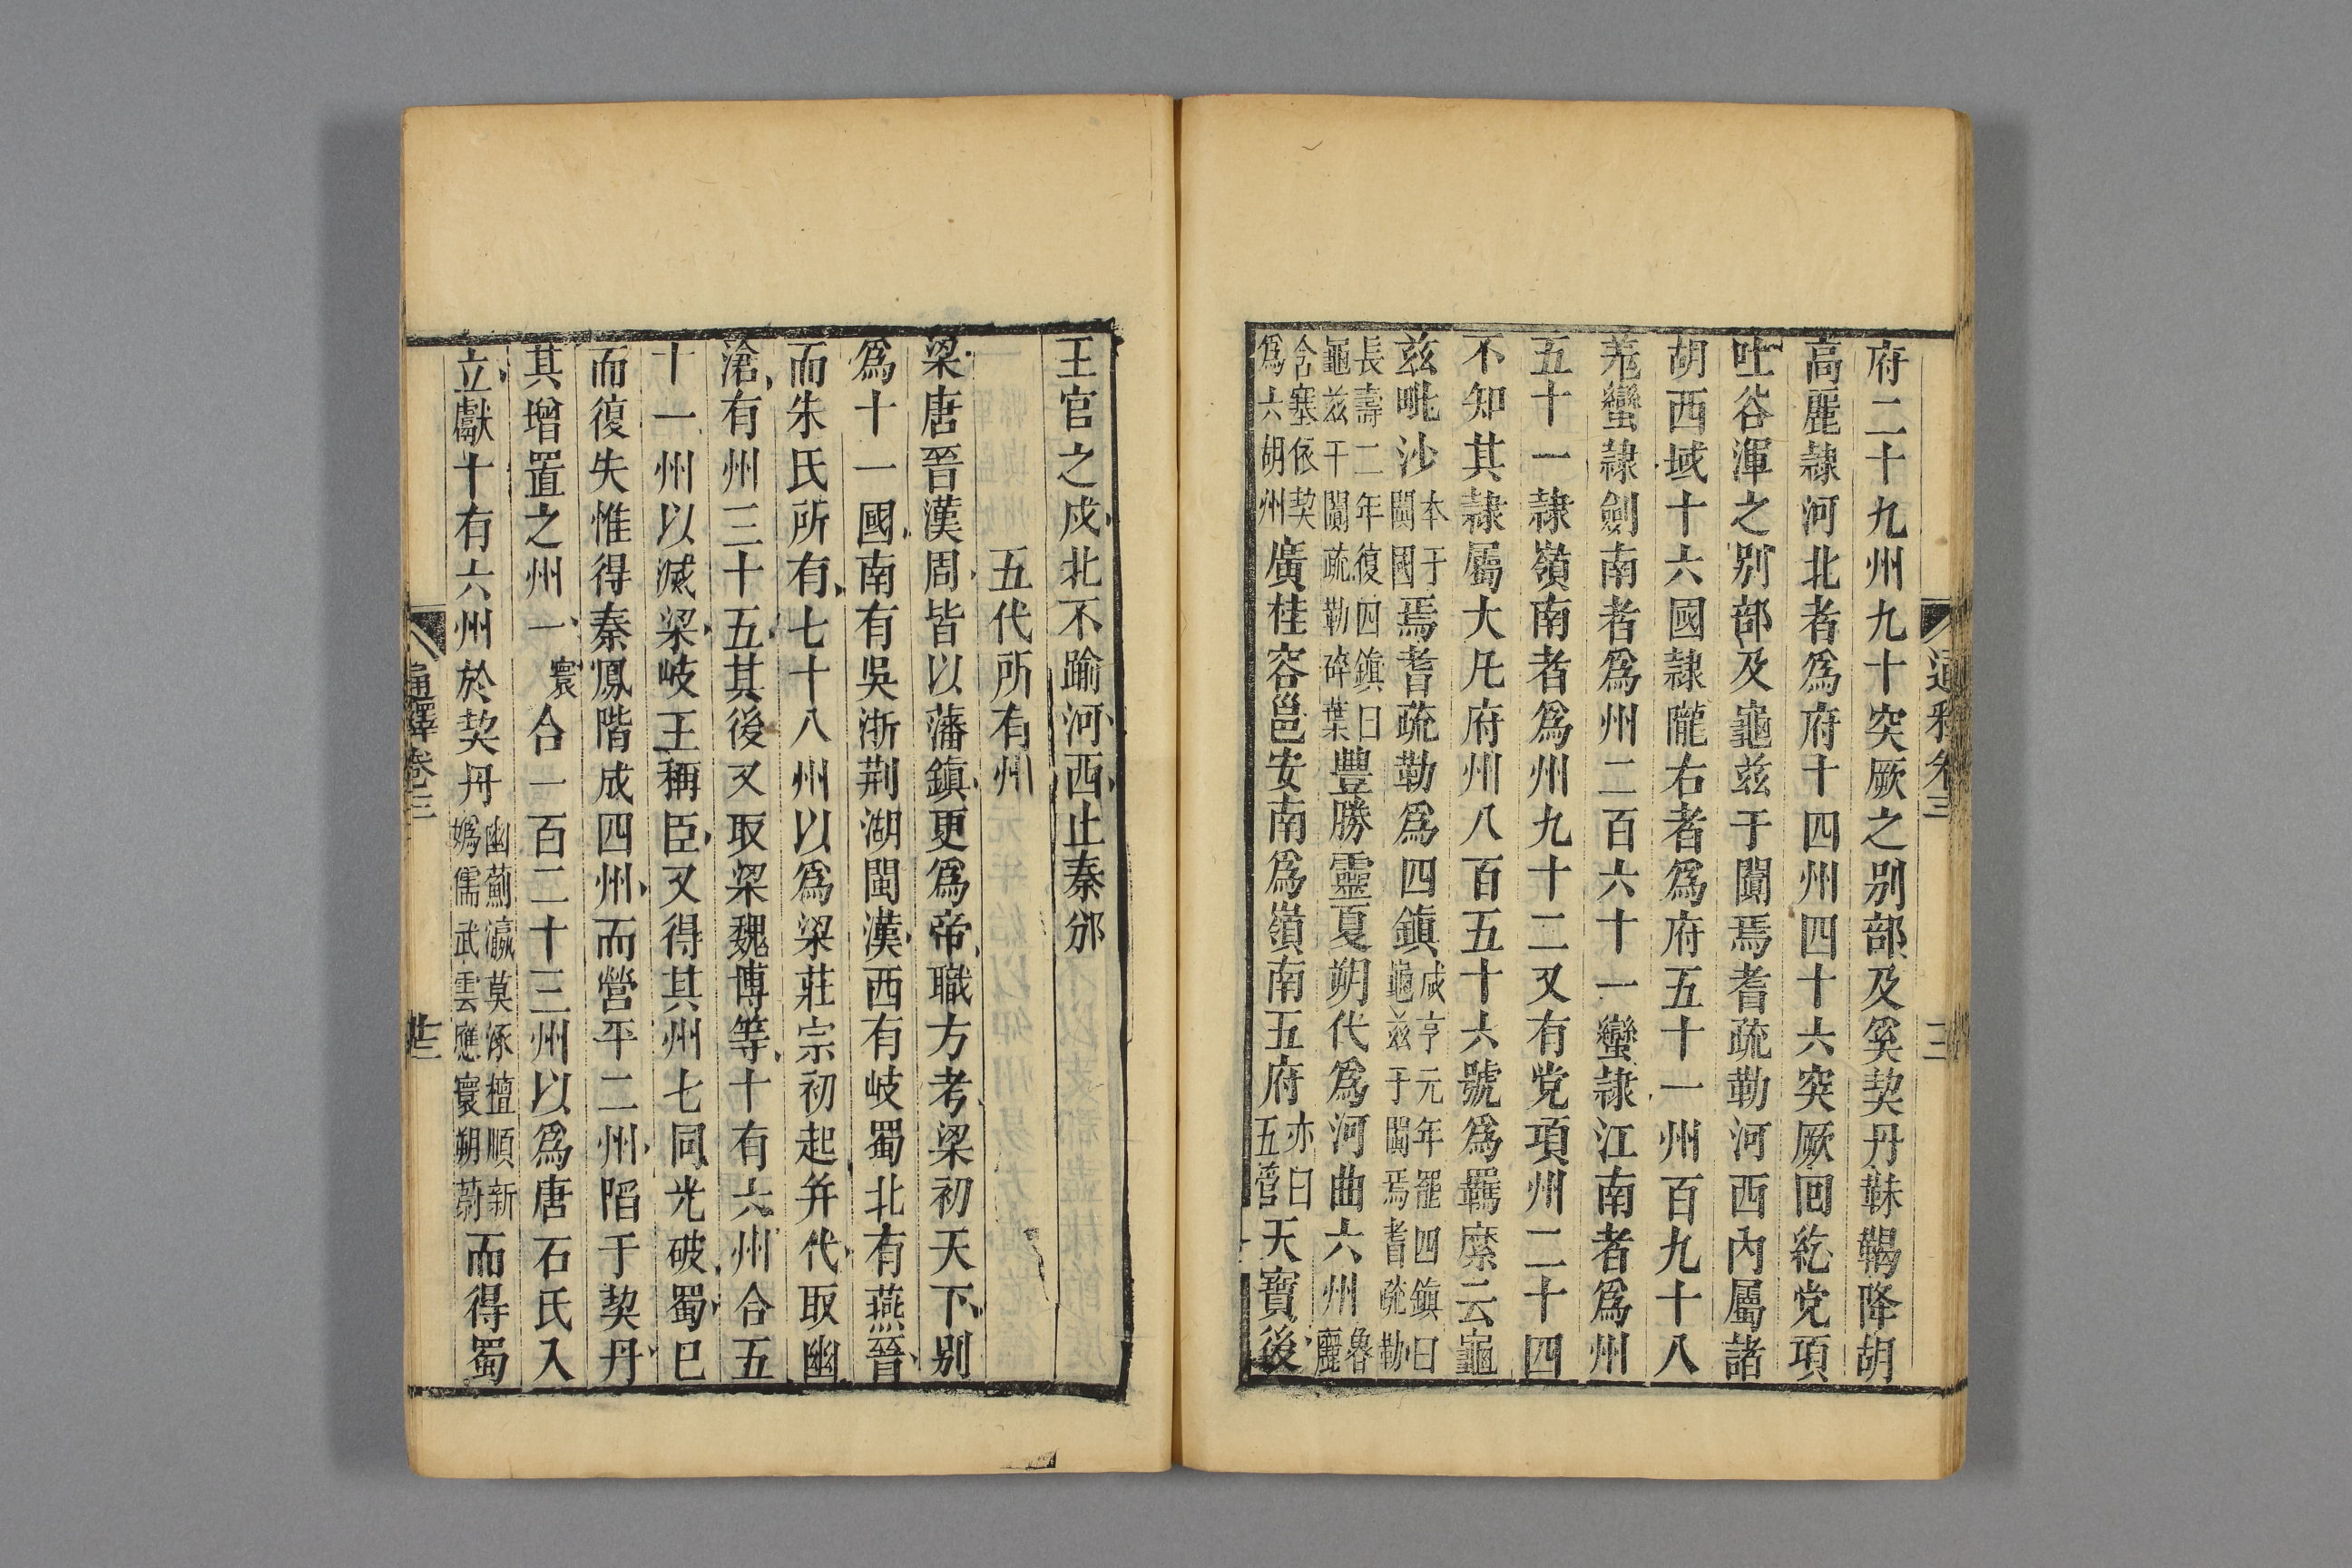 府二十九州九十突厥之別部及奚契丹靺鞨降胡
高麗隷河北者爲府十四州四十六突厥回紇党項
吐谷渾之別部及龜茲于闐焉耆疏勒河西內屬諸
胡西域十六國隷隴右者爲府五十一州百九十八
羌蠻隷劍南者爲州二百六十一蠻隷江南者爲州
五十一隷嶺南者爲州九十二又有党項州二十四
不知其隷屬大凡府州八百五十六號爲羈縻云龜
茲毗沙本于闐國焉耆疏勒爲四鎮咸亨元年罷四鎮曰龜茲于闐焉耆疏勒
長壽二年復四鎮曰龜茲于闐疏勒碎葉豐勝靈夏朔代爲河曲六州魯麗
含塞依契爲六胡州廣桂容邕安南爲嶺南五府亦曰五管天寶後
通釋卷三
三
王官之戍北不踰河西止秦邠
五代所有州
梁唐晉漢周皆以藩鎮更爲帝職方考梁初天下別
爲十一國南有吳浙荆湖閩漢西有岐蜀北有燕晉
而朱氏所有七十八州以爲梁莊宗初起并代取幽
滄有州三十五其後又取梁魏博等十有六州合五
十一州以滅梁岐王稱臣又得其州七同光破蜀已
而復失惟得秦鳳階成四州而營平二州陷于契丹
其增置之州一寰合一百二十三州以爲唐石氏入
立獻十有六州於契丹幽薊瀛莫涿檀順新媯儒武雲應寰朔蔚而得蜀
通釋卷三
廿三